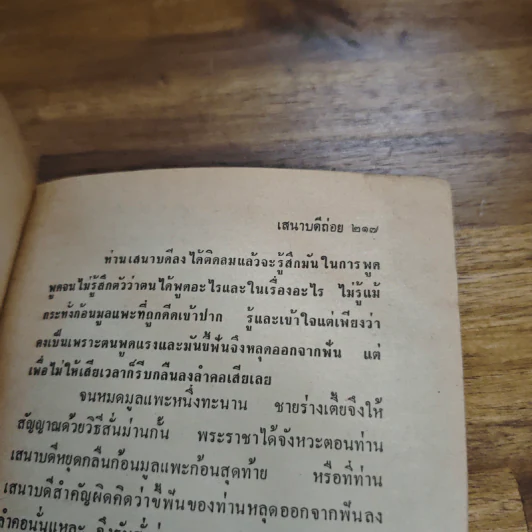 เสนาบดีถ่อย ๒๑๗
ท่านเสนาบดีลงได้ติดลมแล้วจะรู้สึกมันในการพูด
พูดจนไม่รู้สึกตัวว่าตนได้พูดอะไรและในเรื่องอะไร ไม่รู้แม้
กระทั่งก้อนมูลแพะที่ถูกดีดเข้าปาก รู้และเข้าใจแต่เพียงว่า
คงเป็นเพราะตนพูดแรงและมันขี้ฟันจึงหลุดออกจากฟัน แต่
เพื่อไม่ให้เสียเวลาก็รีบกลืนลงลำคอเสียเลย
จนหมดมูลแพะหนึ่งทะนาน ชายร่างเตี้ยจึงให้
สัญญาณด้วยวิธีสั่นม่านกั้น พระราชาได้จังหวะตอนท่าน
เสนาบดีหยุดกลืนก้อนมูลแพะก้อนสุดท้าย หรือที่ท่าน
เสนาบดีสำคัญผิดคิดว่าขี้ฟันของท่านหลุดออกจากฟันลง
ลำคอนั่นแหละ